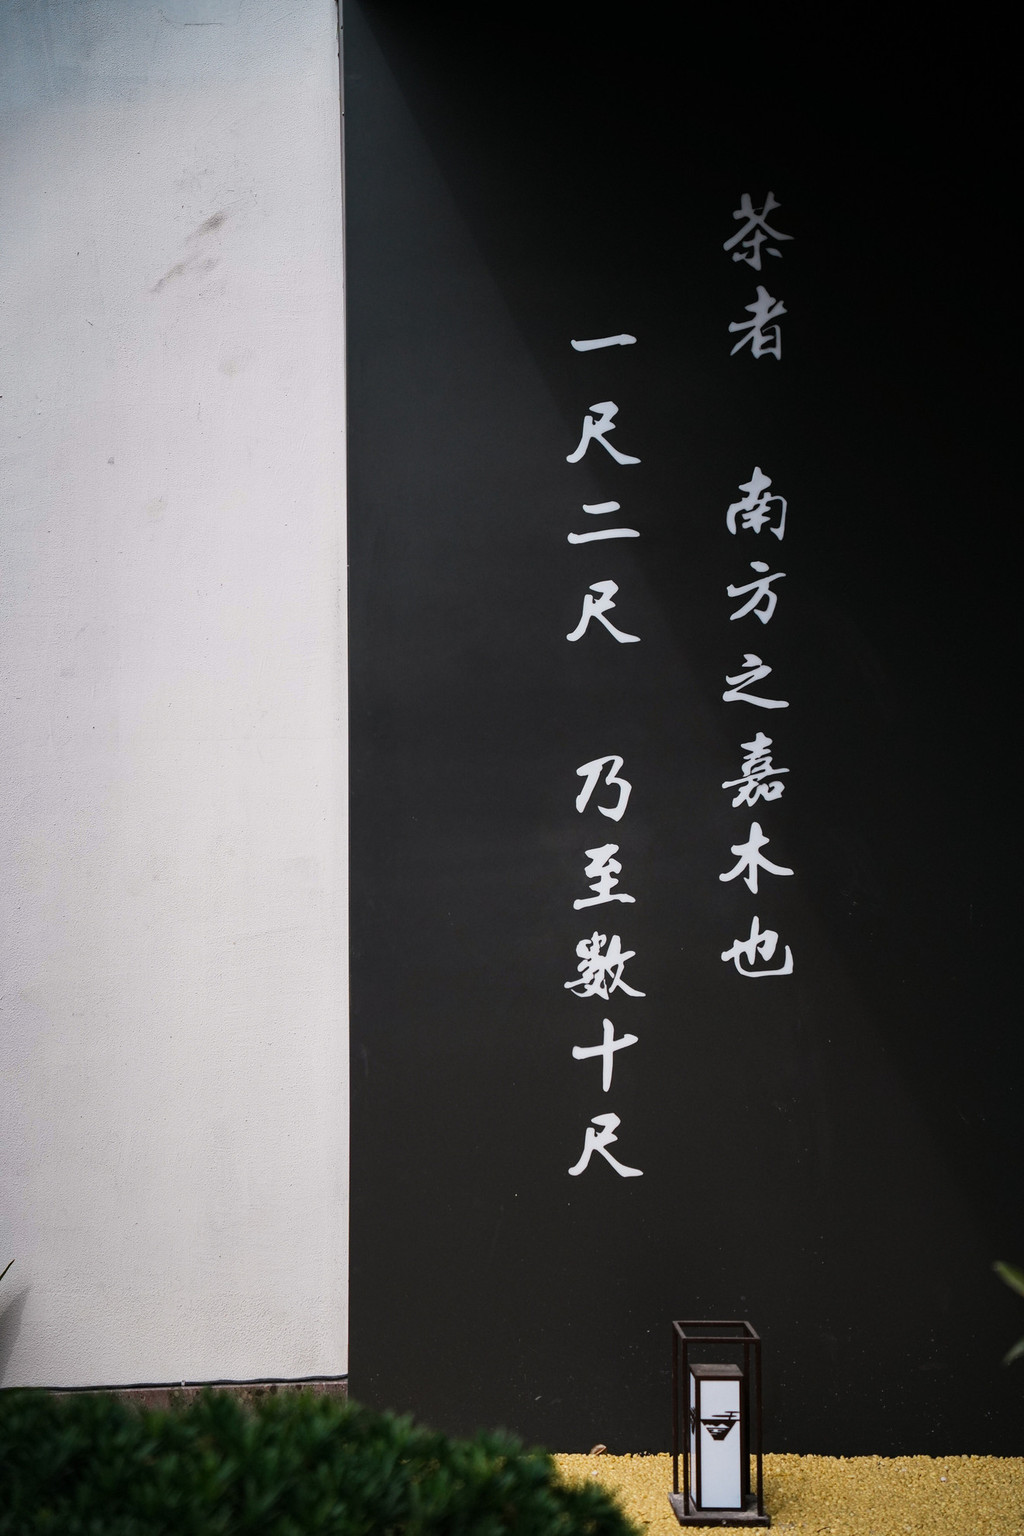 茶者 南方之嘉木也
一尺二尺 乃至數十尺